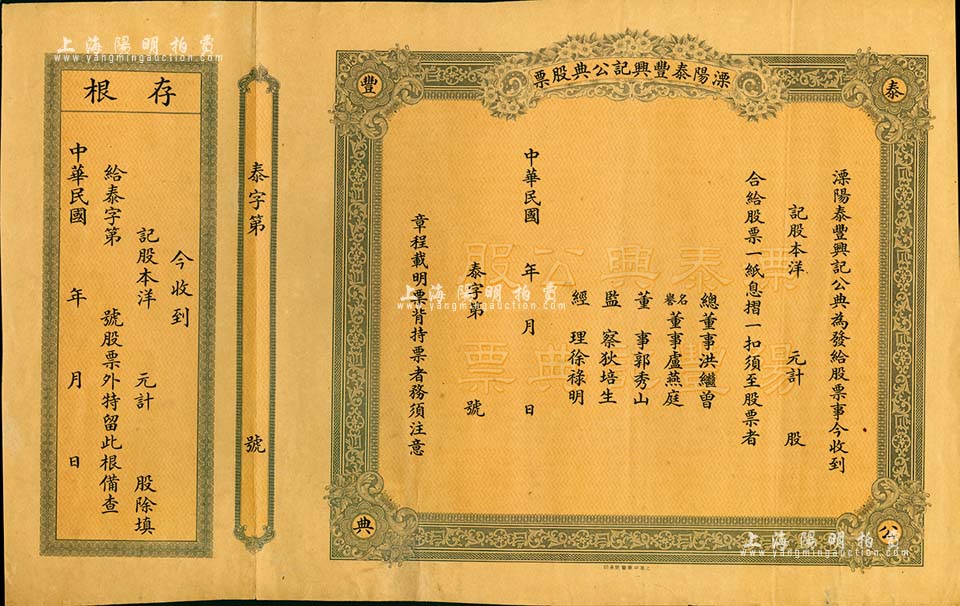 溧陽泰豐興記公典股票
泰
豐
公
典
溧陽泰豐興記公典為發給股票事今收到
記股本洋 元計 股
合給股票一紙息摺一扣須至股票者
總董事洪繼曾
名譽董事盧燕庭
董事郭秀山
監察狄培生
經理徐祿明
中華民國 年 月 日
泰字第 號
章程載明票背持票者務須注意
票泰興公股
陽豐記典票
泰字第 號
存根
今收到
記股本洋 元計 股除填
給泰字第 號股票外特留此根備查
中華民國 年 月 日
上海陽明拍賣
www.yangmingauction.com
上海陽明拍賣
www.yangmingauction.com
上海陽明拍賣
www.yangmingauction.com